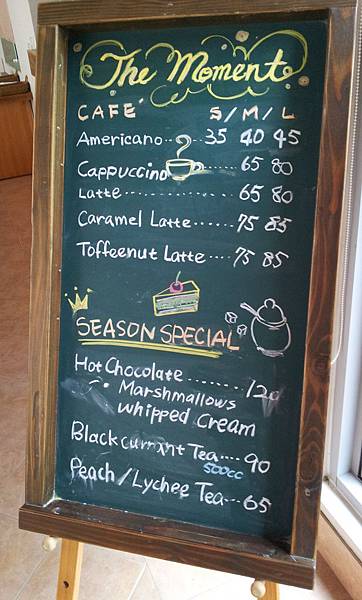 The Moment
CAFE' S/M/L
Americano 35 40 45
Cappuccino 65 80
Latte 65 80
Caramel Latte 75 85
Toffeenut Latte 75 85
SEASON SPECIAL
Hot Chocolate 120
Marshmallows
whipped Cream
Blackcurrant Tea 90
500cc
Peach/Lychee Tea 65